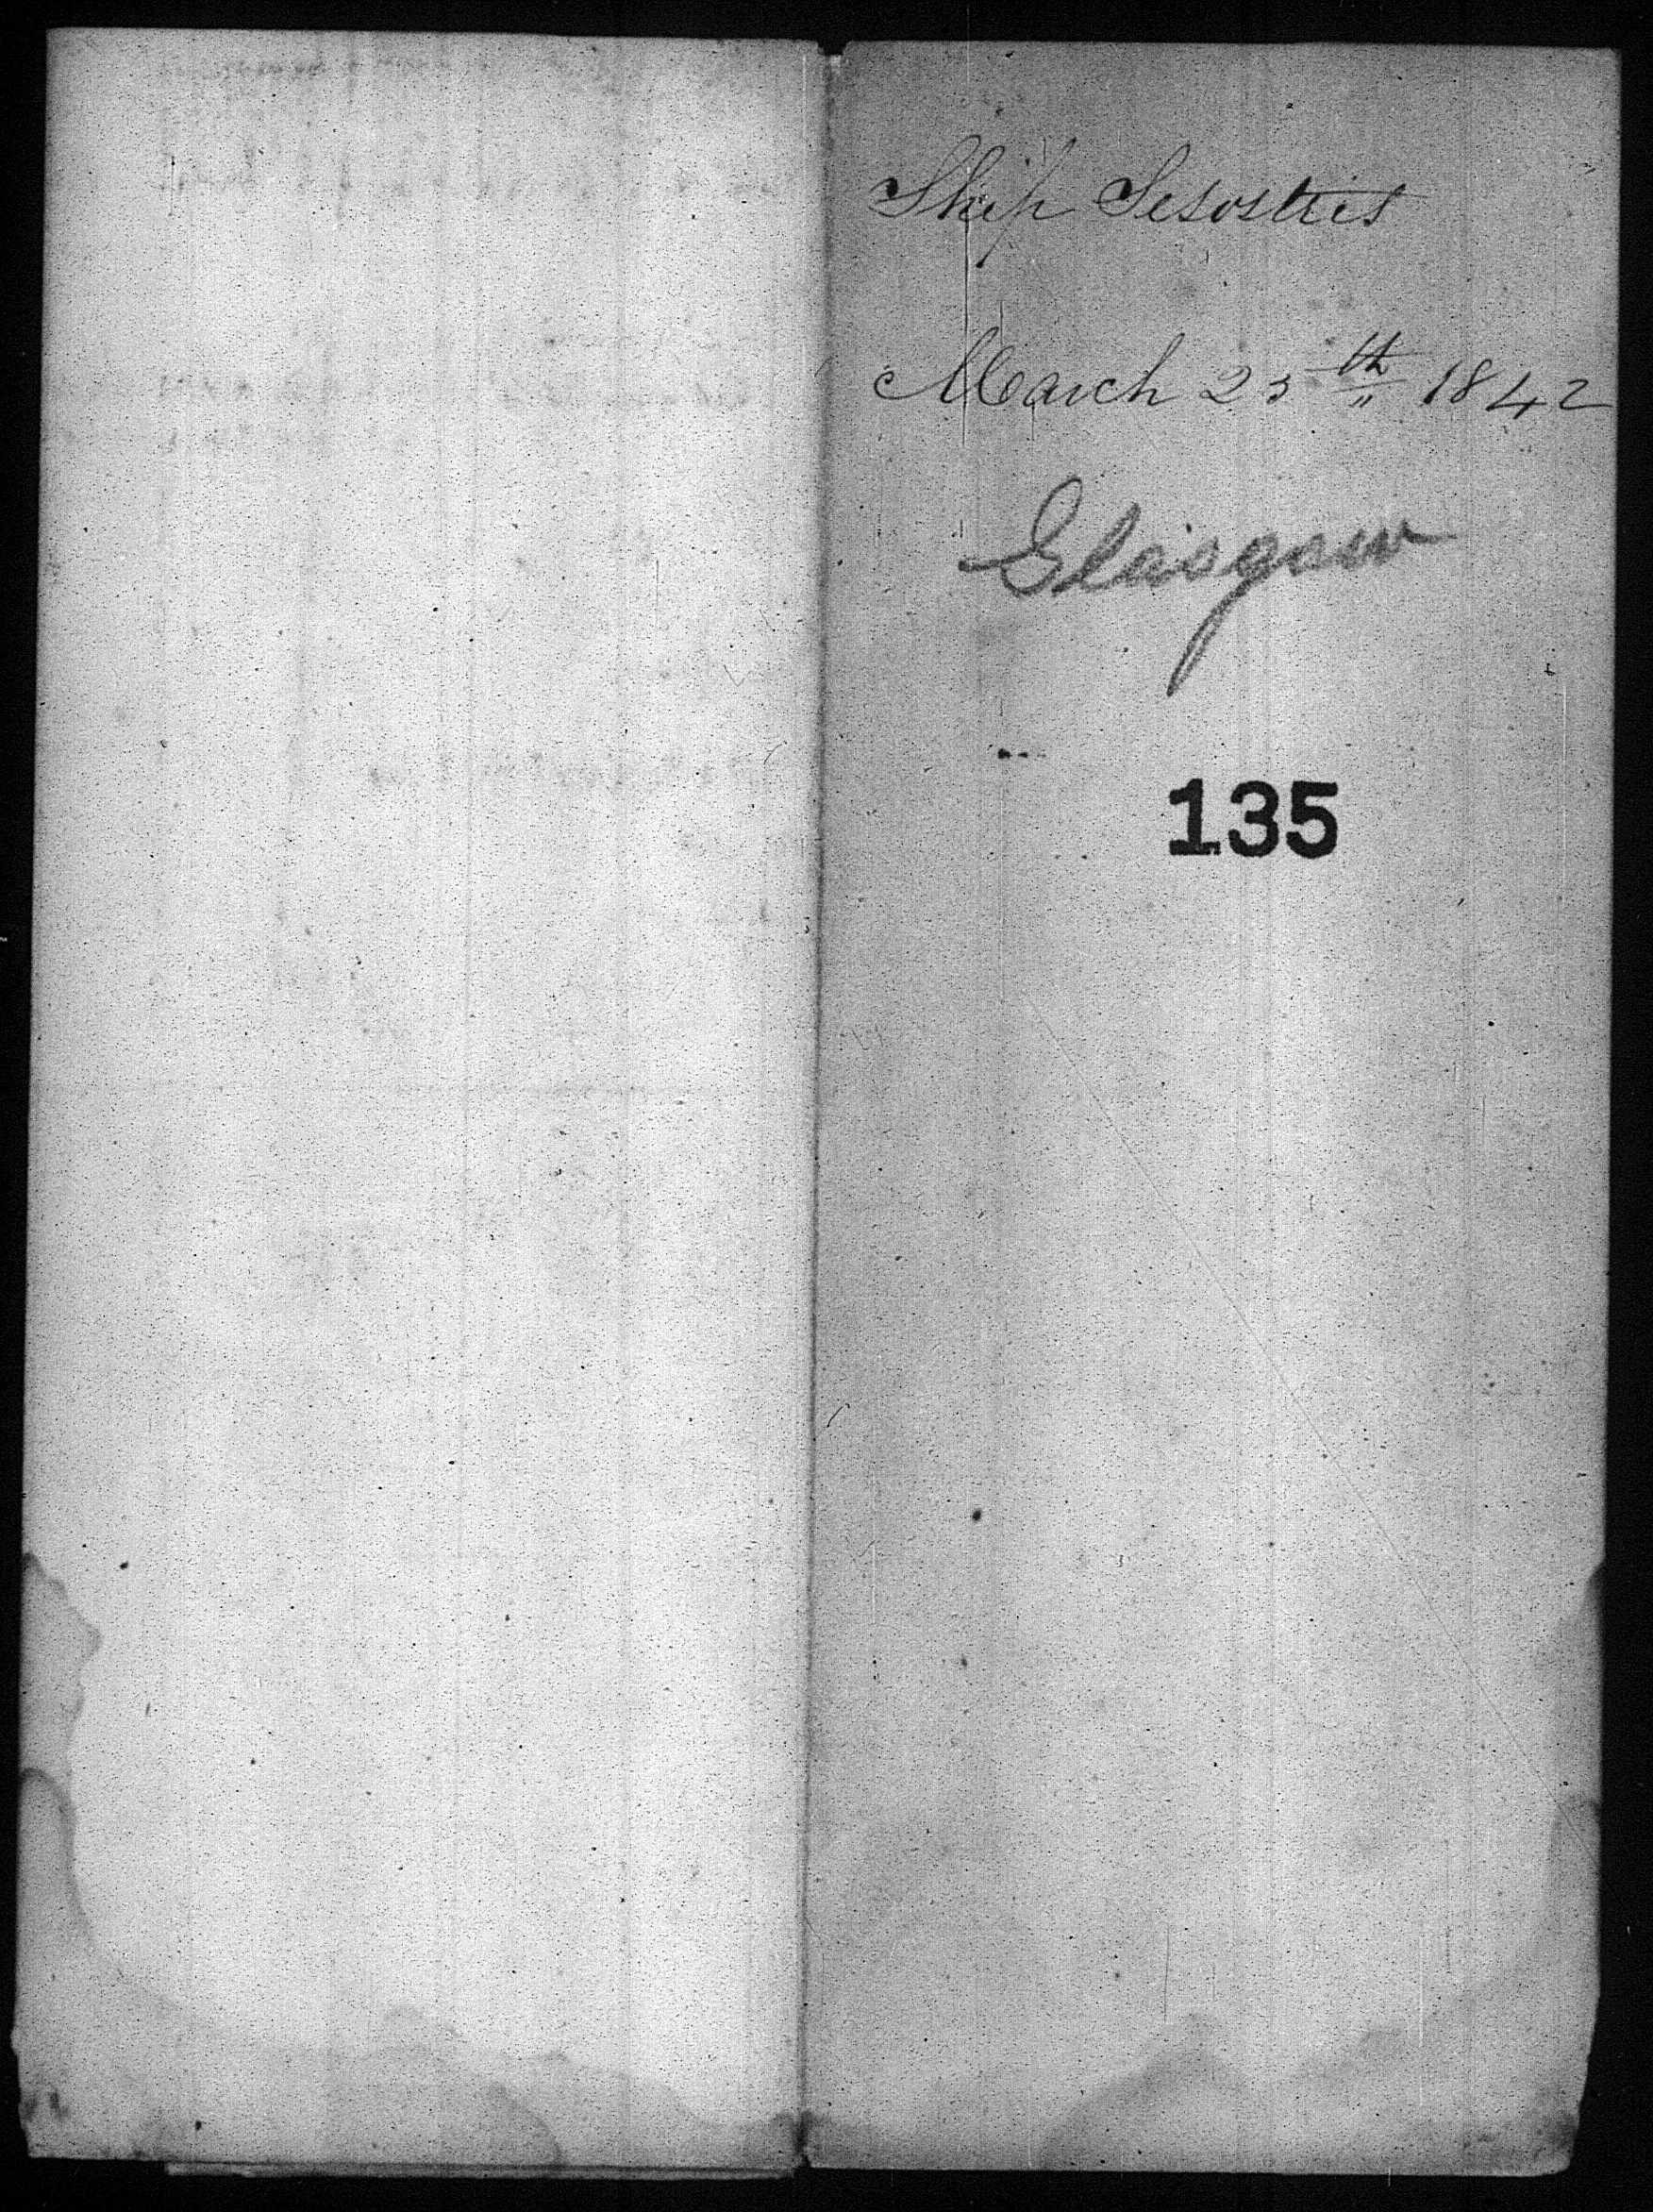 Ship Sesostris
March 25th 1842
Glasgow
135